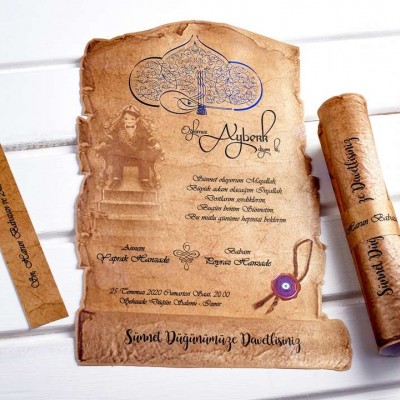 Oğlumuz Ayberk
diyor ki
Sünnet oluyorum Maşallah,
Büyük adam olacağım İnşallah,
Dostlarım sevdiklerim,
Bugün benim Sünnetim,
Bu mutlu günüme hepinizi beklerim
Annem
Yaprak Hanzade
Babam
Poyraz Hanzade
25 Temmuz 2020 Cumartesi Saat: 20.00
Şehzade Düğün Salonu - İzmir
Sünnet Düğünümüze Davetlisiniz
Sn. Harun Babatan ve
Harun Babatan